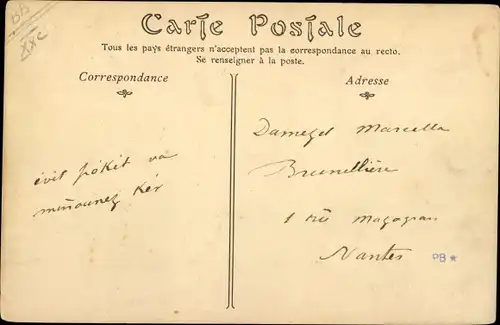 BB
XXC
Carte Postale
Tous les pays étrangers n'acceptent pas la correspondance au recto.
Se renseigner à la poste.
Correspondance
Adresse
évit pokit va
miñounez kér
Damezel Marcella
Brunellière
1 rû
Nantes
PB *